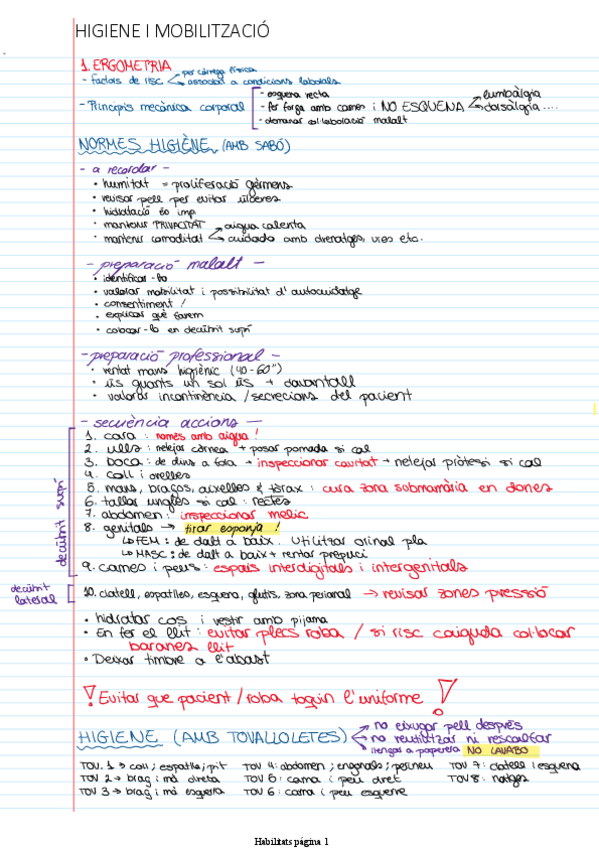 HIGIENE I MOBILITZACIÓ
1. ERGOMETRIA
- factors de risc
per càrrega física
associat a condicions laborals
- Principis mecànica corporal
- esquena recta
- fer força amb cames i NO ESQUENA
lumbàlgia
dorsàlgia ....
- demanar col·laboració malalt
NORMES HIGIÈNE (AMB SABÓ)
- a recordar -
• humitat = proliferació gèrmens
• revisar pell per evitar úlceres
• hidratació és imp.
• mantenir PRIVACITAT
• mantenir comoditat
aigua calenta
cuidado amb drenatges, vies etc.
- preparació malalt -
• identificar-lo
• valorar mobilitat i possibilitat d'autocuidatge
• consentiment !
• explicar què farem
• colocar-lo en decúbit supí
- preparació professional -
• rentat mans higiènic (40-60")
• ús guants un sol ús + davantall
• valorar incontinència / secrecions del pacient
- seqüència accions -
decúbit supí
1. cara : només amb aigua !
2. ulls : netejar còrnea + posar pomada si cal
3. boca : de dins a fora + inspeccionar cavitat + netejar pròtesi si cal
4. coll i orelles
5. mans, braços, aixelles i tòrax : cura zona submamària en dones
6. tallar ungles si cal : rectes
7. abdomen : inspeccionar melic
8. genitals → tirar esponja !
↳ FEM : de dalt a baix. Utilitzar orinal pla
↳ MASC : de dalt a baix + rentar prepuci
9. cames i peus : espais interdigitals i intergenitals
decúbit lateral
10. clatell, espatlles, esquena, glutis, zona perianal → revisar zones pressió
• hidratar cos i vestir amb pijama
• En fer el llit : evitar plecs roba / si risc caiguda col·locar
baranes llit
• Deixar timbre a l'abast
! Evitar que pacient / roba toquin l'uniforme !
HIGIENE (AMB TOVALLOLETES)
no eixugar pell després
no reutilitzar ni rescalfar
llençar a paperera NO LAVABO
TOV. 1 → coll ; espatlla ; pit
TOV 4: abdomen ; engonals ; perineu
TOV 7: clatell i esquena
TOV 2 → braç i mà dreta
TOV 5 : cama i peu dret
TOV 8 : natges
TOV 3 → braç i mà esquerra
TOV 6 : cama i peu esquerre
Habilitats página 1